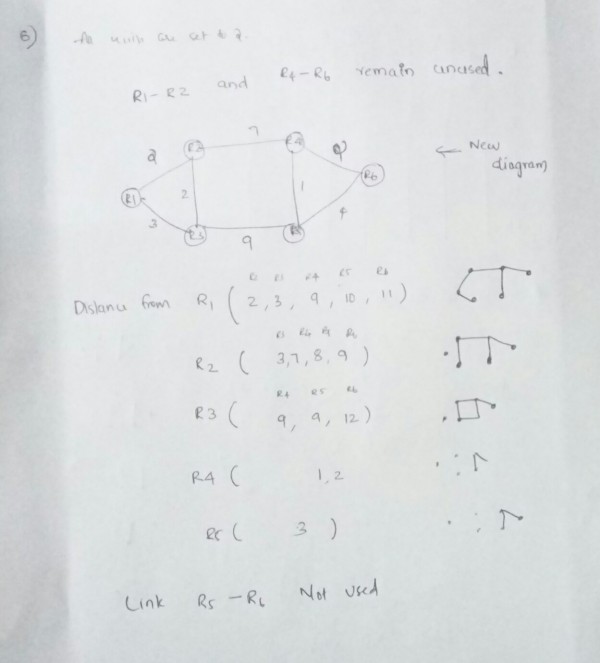 5) As links are set to 2.
R1 - R2 and R4 - R6 remain unused.
7
R2 R4
2 2
← New diagram
R1 2 1 R6
3 4
R3 R5
9
R2 R3 R4 R5 R6
Distance from R1 ( 2, 3, 9, 10, 11 )
R3 R4 R5 R6
R2 ( 3, 7, 8, 9 )
R4 R5 R6
R3 ( 9, 9, 12 )
R4 ( 1, 2
R5 ( 3 )
Link R5 - R6 Not used